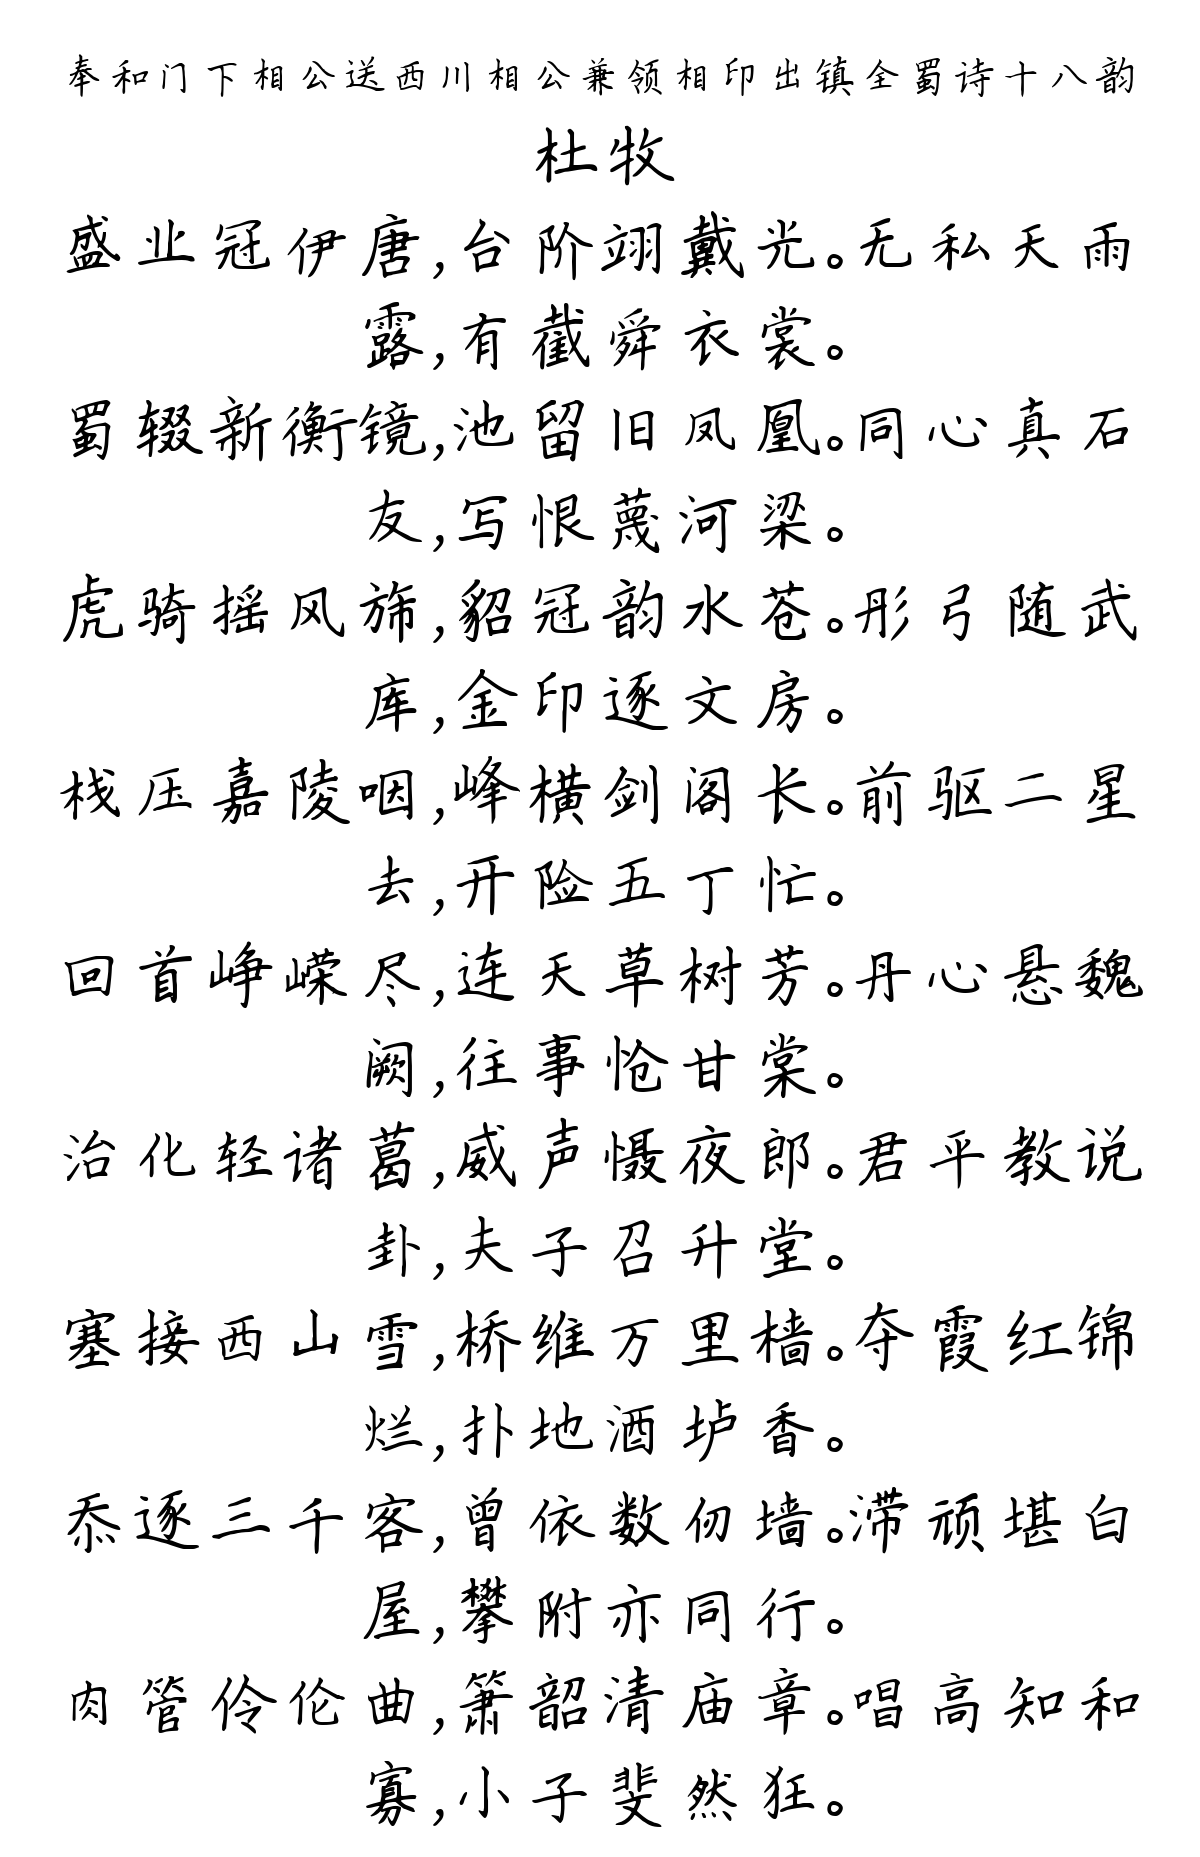 奉和门下相公送西川相公兼领相印出镇全蜀诗十八韵
杜牧
盛业冠伊唐,台阶翊戴光。无私天雨
露,有截舜衣裳。
蜀辍新衡镜,池留旧凤凰。同心真石
友,写恨蔑河梁。
虎骑摇风旆,貂冠韵水苍。彤弓随武
库,金印逐文房。
栈压嘉陵咽,峰横剑阁长。前驱二星
去,开险五丁忙。
回首峥嵘尽,连天草树芳。丹心悬魏
阙,往事怆甘棠。
治化轻诸葛,威声慑夜郎。君平教说
卦,夫子召升堂。
塞接西山雪,桥维万里樯。夺霞红锦
烂,扑地酒垆香。
忝逐三千客,曾依数仞墙。滞顽堪白
屋,攀附亦同行。
肉管伶伦曲,箫韶清庙章。唱高知和
寡,小子斐然狂。